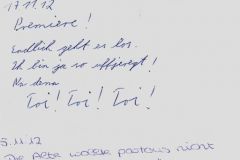 17.11.12
Premiere!
Endlich geht es los.
Ich bin ja so aufgeregt!
Na denn
Toi! Toi! Toi!
5.11.12
Die Pete wollte partout nicht